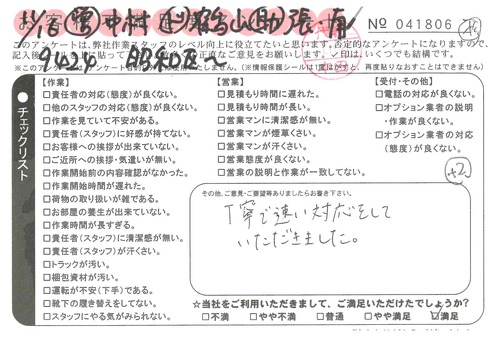 No 041806
このアンケートは、弊社作業スタッフのレベル向上に役立てたいと思います。否定的なアンケートになりますので、
【作業】
□責任者の対応(態度)が良くない。
□他のスタッフの対応(態度)が良くない。
□作業を見ていて不安がある。
□責任者(スタッフ)に好感が持てない。
□お客様への挨拶が出来ていない。
□ご近所への挨拶・気遣いが無い。
□作業開始前の内容確認がなかった。
□作業開始時間が遅れた。
□荷物の取り扱いが雑である。
□お部屋の養生が出来ていない。
□作業時間が長すぎる。
□責任者(スタッフ)に清潔感が無い。
□責任者(スタッフ)が汗くさい。
□トラックが汚い。
□梱包資材が汚い。
□運転が不安(下手)である。
□靴下の履き替えをしてない。
□スタッフにやる気がみられない。
チェックリスト
【営業】
□見積もり時間に遅れた。
□見積もり時間が長い。
□営業マンに清潔感が無い。
□営業マンが煙草くさい。
□営業マンが汗くさい。
□営業態度が良くない。
□営業の説明と作業が一致してない。
【受付・その他】
□電話の対応が良くない。
□オプション業者の説明
・作業が良くない。
□オプション業者の対応
(態度)が良くない。
+2
その他、ご意見・ご要望等ありましたらお書き下さい。
丁寧で速い対応をして
いただきました。
☆当社をご利用いただきまして、ご満足いただけたでしょうか?
□不満 □やや不満 □普通 □やや満足 ☑満足